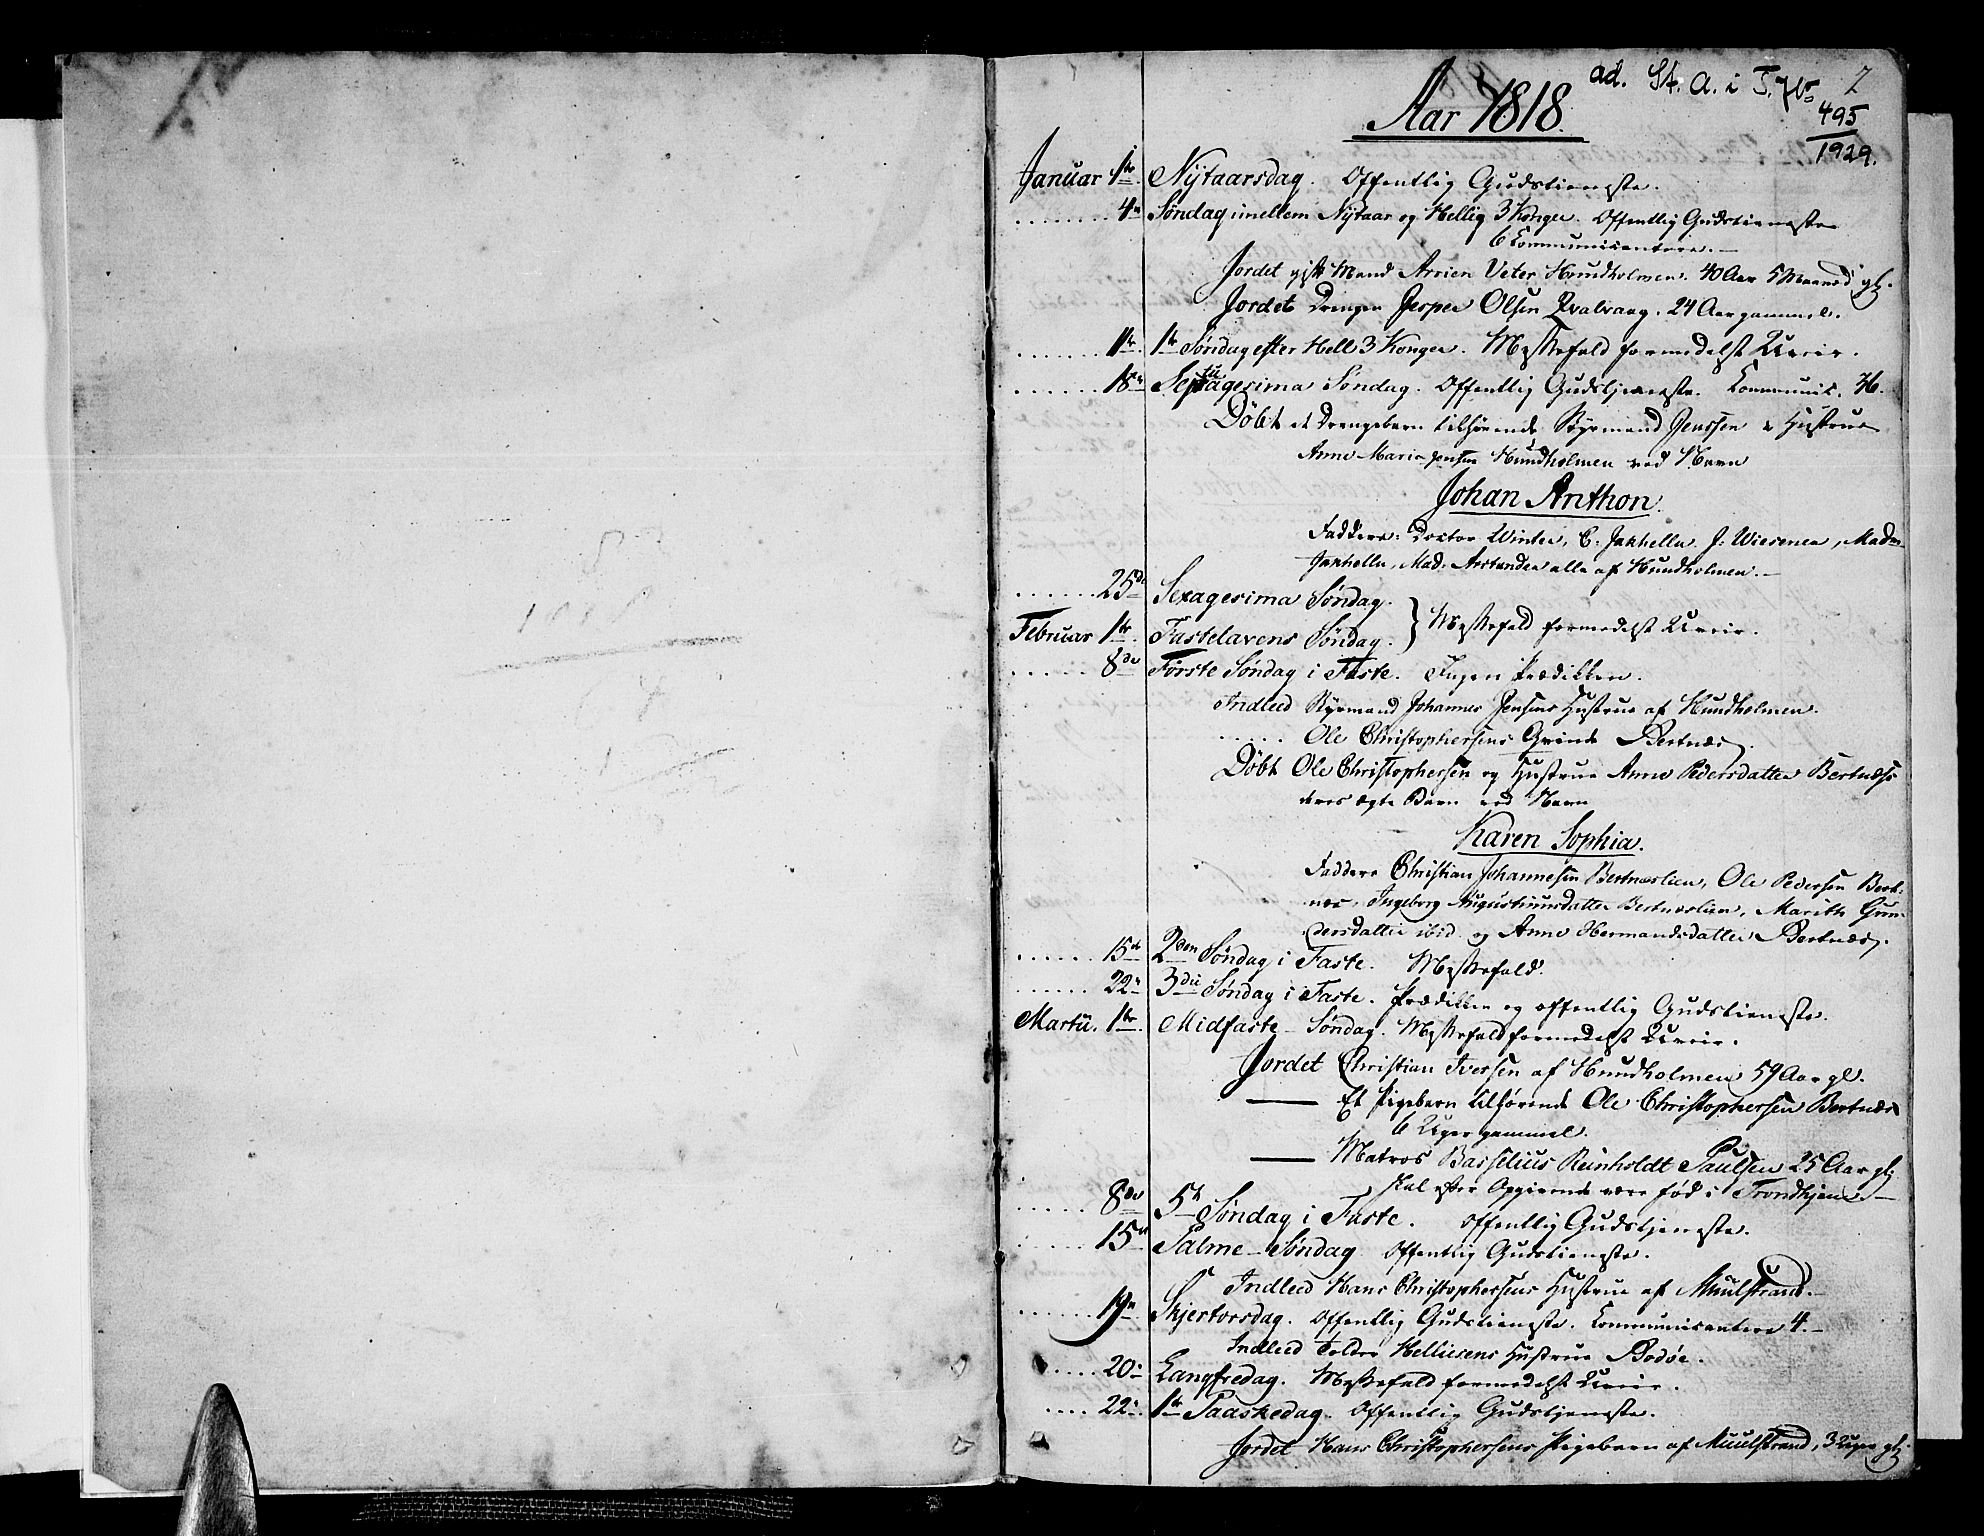 ad. St. A. i T. Jb 2
495
1929.
Aar 1818.
Januar 1ste Nytaarsdag. Offentlig Gudstieneste.
4de Søndag imellem Nytaar og Hellig 3 Konger. Offentlig Gudstieneste
6 Communicantere.
Jordet gift Mand Arrien Veter Hundholmen. 40 Aar 5 Maaned gl.
Jordet Drengen Jesper Olsen Qvalvaag. 24 Aar gammel.
11te 1ste Søndag efter Hell 3 Konger. Messefald formedelst Uveir.
18de Septuagesima Søndag. Offentlig Gudstjeneste. Communic. 36.
Døbt et Drengebarn tilhørende Styrmand Jenssen & Hustrue
Anne Maria Jensen Hundholmen ved Navn
Johan Anthon.
Faddere: Doctor Winter, C: Jakhelln, J: Wiesener, Madm
Jakhelln, Mad: alle af Hundholmen.
25de Sexagesima Søndag.
Februar 1ste Fastelavens Søndag. } Messefald formedelst Uveir.
8de Første Søndag i Faste. Ingen Prædikken.
Indleed Styrmand Johannes Jensens Hustrue af Hundholmen.
Ole Christophersens Qvinde Bertnæs.
Døbt Ole Christophersen og Hustrue Anne Pedersdatter Bertnæs
deres ægte Barn ved Navn
Karen Sophia.
Faddere Christian Johannesen Bertnæslien, Ole Pedersen Bert:
næs, Ingeborg Augustinusdatter Bertnæslien, Marith Gun-
dersdatter ibid. og Anne Hermandsdatter Bertnæs.
15de 2den Søndag i Faste. Messefald.
22de 3die Søndag i Faste. Prædikken og offentlig Gudstieneste.
Martii. 1ste Midfaste-Søndag. Messefald formedelst Uveir.
Jordet Christian Iversen af Hundholmen 59 Aar gl.
— Et Pigebarn tilhørende Ole Christophersen Bertnæs
6 Uger gammel.
— Matros Basselius Reinholdt Paulsen 25 Aar gl:
skal efter Opgivende være fød i Trondhjem
8de 5te Søndag i Faste. Offentlig Gudstjeneste.
15de Palme-Søndag Offentlig Gudstieneste.
Indleed Hans Christophersens Hustrue af Muulstrand.
19de Skjertorsdag. Offentlig Gudstieneste. Communicantere 4.
Indleed Helliesens Hustrue Bodøe.
20de Langfredag. Messefald formedelst Uveir.
22de 1ste Paaskedag. Offentlig Gudstjeneste.
Jordet Hans Christophersens Pigebarn af Muulstrand, 3 Uger gl: